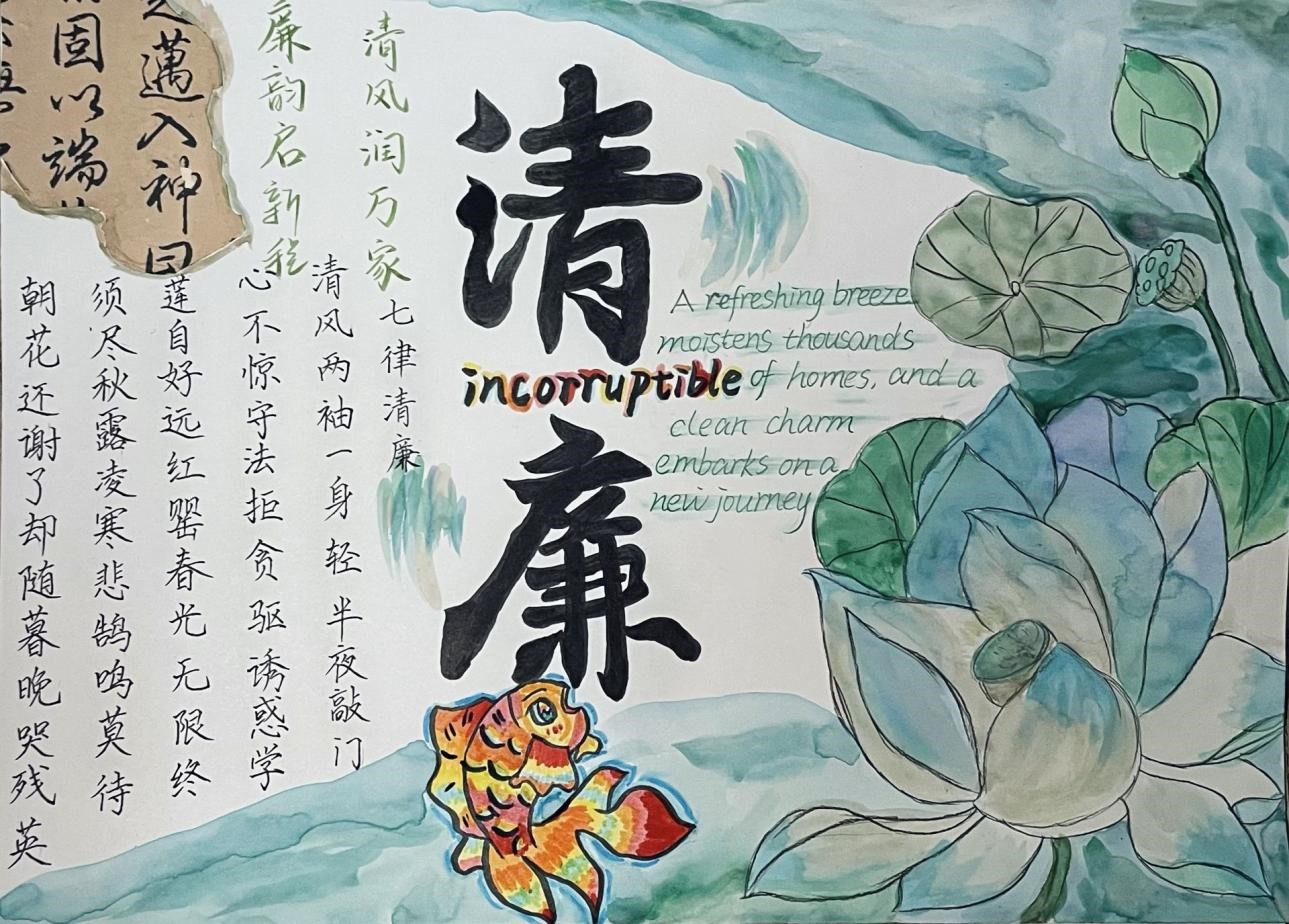 清风润万家
廉韵启新程
清
廉
incorruptible
A refreshing breeze
moistens thousands
of homes, and a
clean charm
embarks on a
new journey
七律清廉
清风两袖一身轻半夜敲门
心不惊守法拒贪驱诱惑学
莲自好远红罂春光无限终
须尽秋露凌寒悲鹄鸣莫待
朝花还谢了却随暮晚哭残英
迈入神曰
固以端